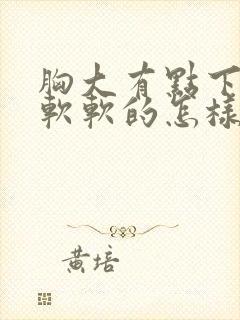 胸大有點下
軟軟的怎樣
黃培